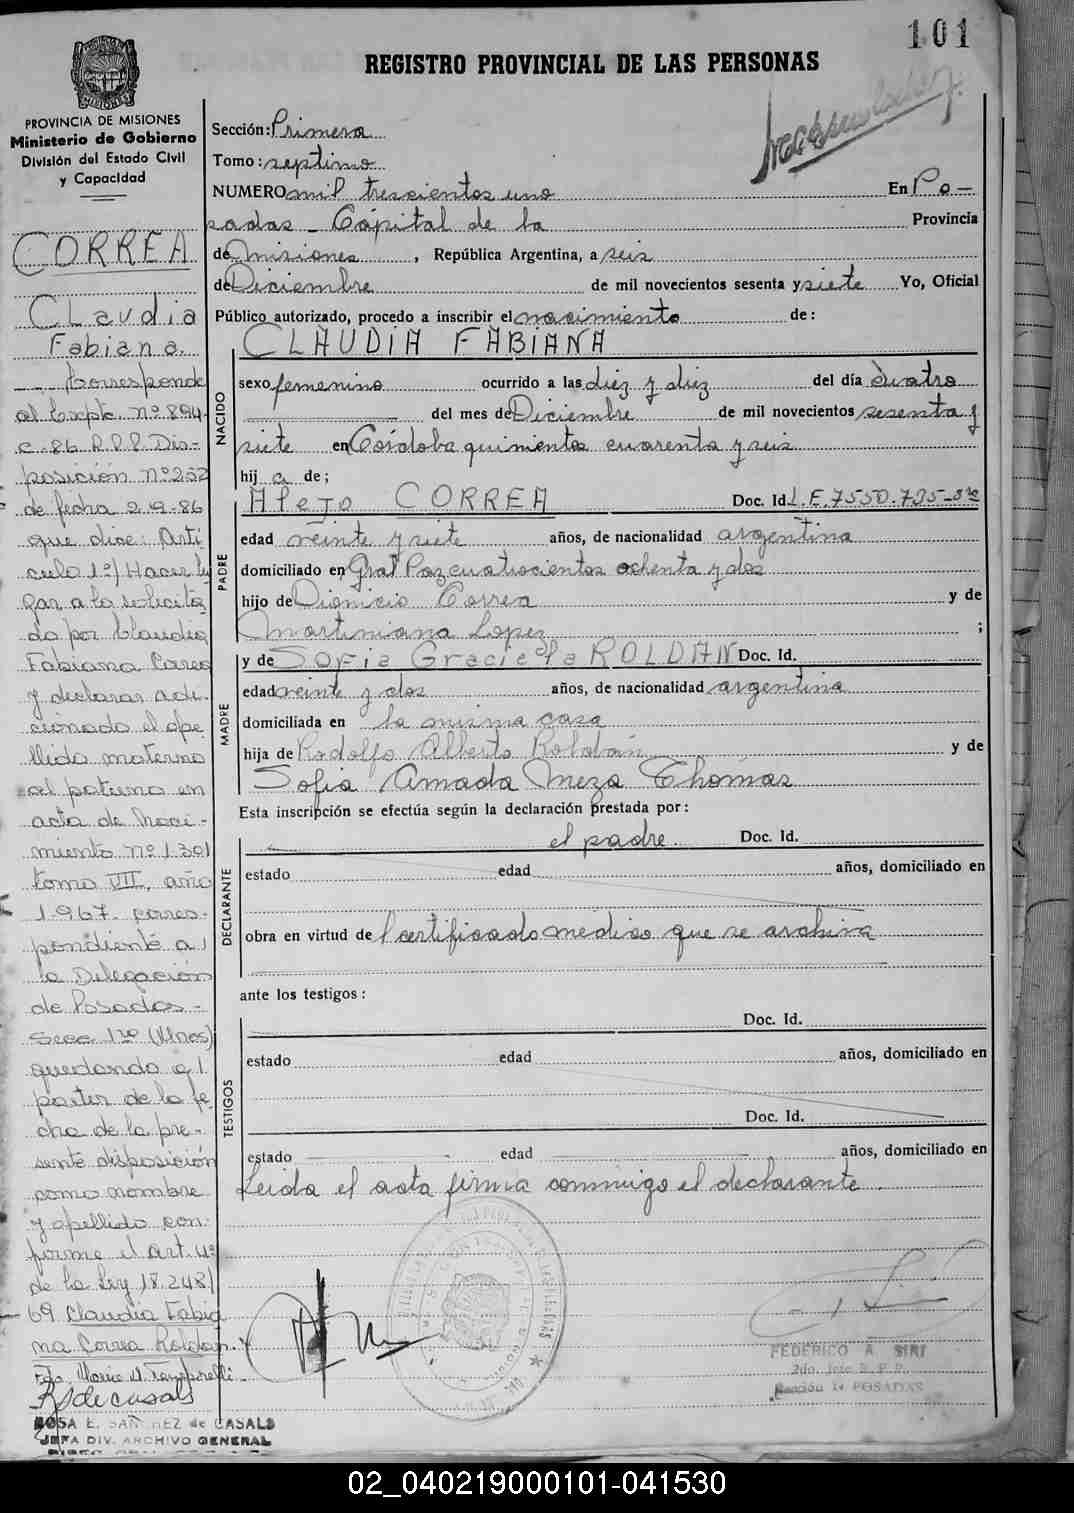 101
REGISTRO PROVINCIAL DE LAS PERSONAS
PROVINCIA DE MISIONES
Ministerio de Gobierno
División del Estado Civil
y Capacidad
CORREA
Claudia
Fabiana.
Corresponde
al Expte. nº 894-
c-86 R.P.P. Dis-
posición nº 252
de fecha 2-9-86
que dice: Artí
culo 1º/ Hacer lu
gar a lo solicita
do por Claudia
Fabiana Correa
y declarar adi-
cionado el ape
llido materno
al paterno en
acta de naci-
miento nº 1301
tomo VII, año
1.967. corres-
pondiente a
la Delegación
de Posadas-
Secc 1ra
quedando a
partir de la fe
cha de la pre-
sente disposición
como nombre
y apellido con-
forme el art. 4º
de la ley 18.248/
69 Claudia Fabia
na Correa Roldán.
Fdo. María
RSdecasals
ROSA E. SANCHEZ de CASALS
JEFA DIV. ARCHIVO GENERAL
Sección: Primera
Tomo: septimo
NUMERO mil trescientos uno En Po-
sadas - Capital de la Provincia
de Misiones, República Argentina, a seis
de Diciembre de mil novecientos sesenta y siete Yo, Oficial
Público autorizado, procedo a inscribir el nacimiento de:
CLAUDIA FABIANA
NACIDO
sexo femenino ocurrido a las diez y diez del día cuatro
del mes de Diciembre de mil novecientos sesenta y
siete en Córdoba quinientos cuarenta y seis
hij a de;
PADRE
Alejo CORREA Doc. Id. L.E. 7.550.725-
edad veinte y siete años, de nacionalidad argentina
domiciliado en Gral Paz cuatrocientos ochenta y dos
hijo de Dionicio Correa y de
Martiniana Lopez ;
MADRE
y de Sofia Graciela ROLDAN Doc. Id.
edad veinte y dos años, de nacionalidad argentina
domiciliada en la misma casa
hija de Rodolfo Alberto Roldán y de
Sofia Amada Meza Thomas
Esta inscripción se efectúa según la declaración prestada por:
DECLARANTE
el padre Doc. Id.
estado edad años, domiciliado en
obra en virtud de l certificado médico que se archiva
ante los testigos:
TESTIGOS
Doc. Id.
estado edad años, domiciliado en
Doc. Id.
estado edad años, domiciliado en
Leida el acta firma conmigo el declarante
FEDERICO A. SIRI
2do. Jefe R. P. P.
Sección 1a POSADAS
02_040219000101-041530